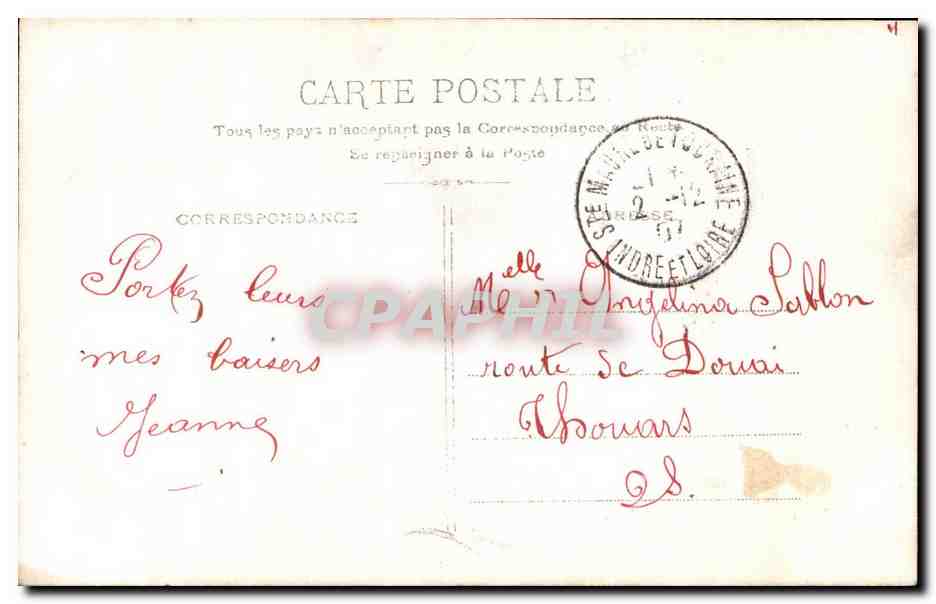 CARTE POSTALE
Tous les pays n'acceptant pas la Correspondance au Recto
Se renseigner à la Poste
STE MAURE DE TOURAINE
2 -12
07
INDRE ET LOIRE
CORRESPONDANCE
ADRESSE
Portez leurs
mes baisers
Jeanne
Melle Angelina Sablon
route de Douai
Thouars
D S.
CPAPHIL